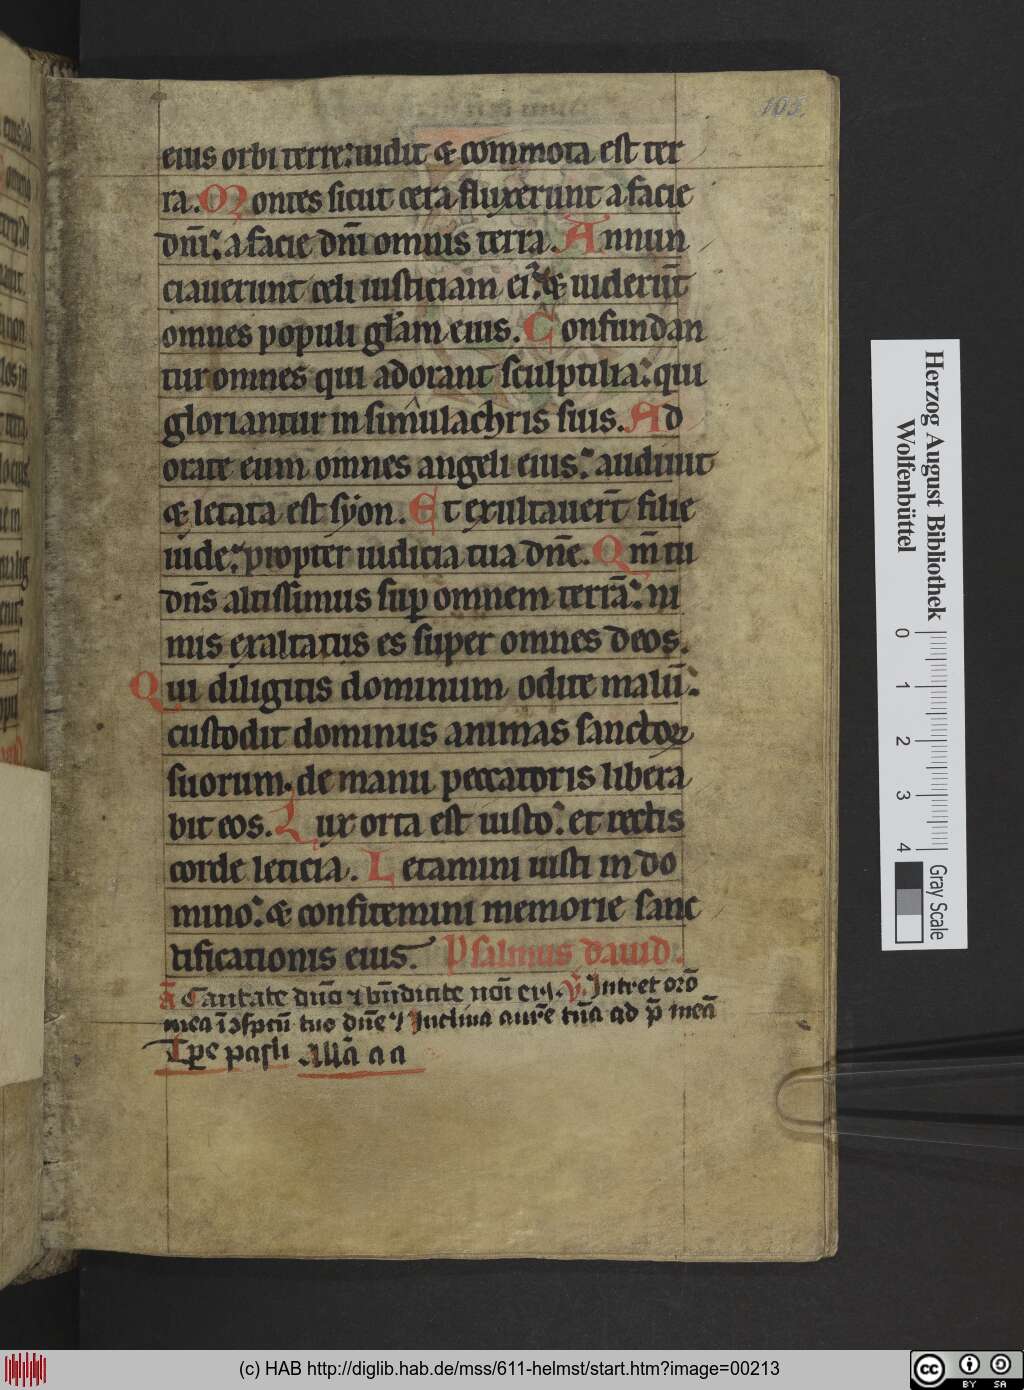 105
eius orbi terre: uidit & commota est ter
ra. Montes sicut cera fluxerunt a facie
dn̄i: a facie dn̄i omnis terra. Annun
ciauerunt celi iusticiam ei᾿: & uiderūt
omnes populi gl̄am eius. Confundan
tur omnes qui adorant sculptilia: qui
gloriantur in simulachris suis. Ad
orate eum omnes angeli eius: audiuit
& letata est syon. Et exultauer̄t filie
iude: propter iudicia tua dn̄e. Qm̄ tu
dn̄s altissimus sup̱ omnem terrā: ni
mis exaltatus es super omnes deos.
Qui diligitis dominum odite malū:
custodit dominus animas sanctoꝝ
suorum. de manu peccatoris libera
bit eos. Lux orta est iusto: et rectis
corde leticia. Letamini iusti in do
mino: & confitemini memorie sanc
tificationis eius. Psalmus dauid.
A᷃ Cantate dn̄o ⁊ bn̄dicite noı̄ eiꝰ. V᷃ Intret orō
mea ī ↄspectū tuo dn̄e ⁊ Inclina aurē tuā ad p̄ mea᷃
Tp̱e pasch Allā a a
Herzog August Bibliothek
Wolfenbüttel
0 1 2 3 4
Gray Scale
(c) HAB http://diglib.hab.de/mss/611-helmst/start.htm?image=00213
cc BY SA